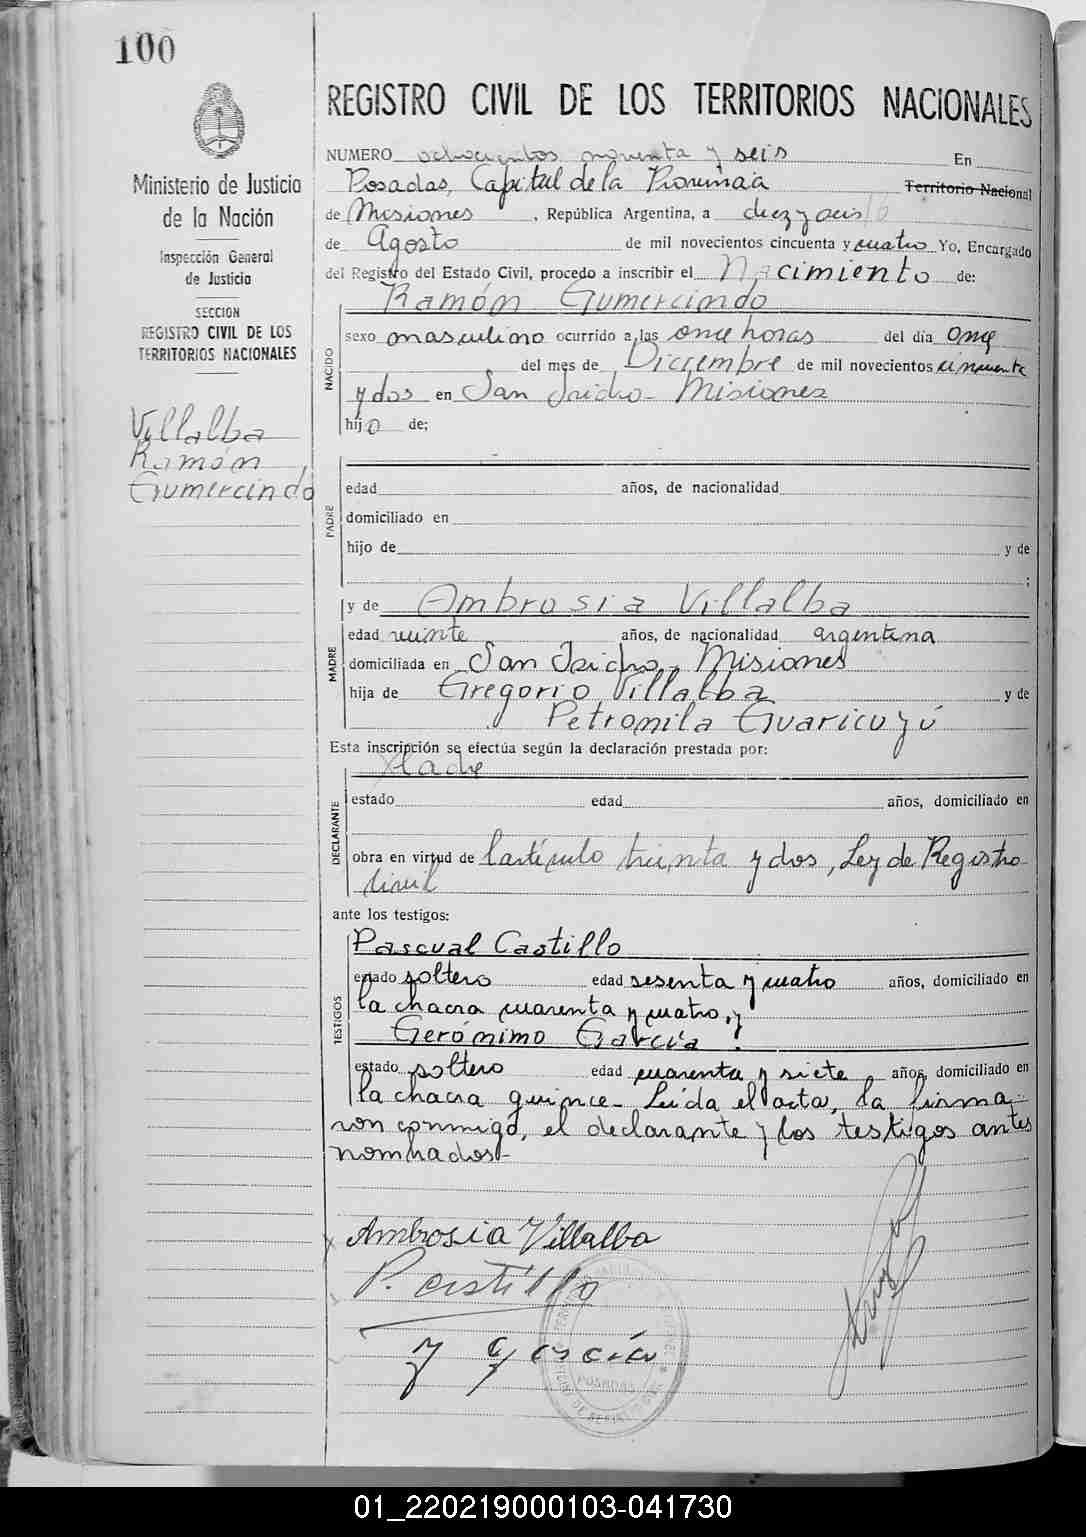 100
REGISTRO CIVIL DE LOS TERRITORIOS NACIONALES
Ministerio de Justicia
de la Nación
Inspección General
de Justicia
SECCION
REGISTRO CIVIL DE LOS
TERRITORIOS NACIONALES
Villalba
Ramón
Gumercindo
NUMERO ochocientos noventa y seis En
Posadas, Capital de la Provincia Territorio Nacional
de Misiones, República Argentina, a diez y seis
de Agosto de mil novecientos cincuenta y cuatro Yo, Encargado
del Registro del Estado Civil, procedo a inscribir el Nacimiento de:
Ramón Gumercindo
NACIDO
sexo masculino ocurrido a las once horas del día once
del mes de Diciembre de mil novecientos cincuenta
y dos en San Isidro - Misiones
hijo de;
PADRE
edad años, de nacionalidad
domiciliado en
hijo de y de
;
y de Ambrosia Villalba
MADRE
edad veinte años, de nacionalidad argentina
domiciliada en San Isidro - Misiones
hija de Gregorio Villalba y de
Petronila Guaricuyú
Esta inscripción se efectúa según la declaración prestada por:
Madre
DECLARANTE
estado edad años, domiciliado en
obra en virtud de l'artículo treinta y dos, Ley de Registro
Civil
ante los testigos:
Pascual Castillo
TESTIGOS
estado soltero edad sesenta y cuatro años, domiciliado en
la chacra cuarenta y cuatro, y
Gerónimo García
estado soltero edad cuarenta y siete años, domiciliado en
la chacra quince - Leída el acta, la firma
ron conmigo, el declarante y los testigos antes
nombrados-
Ambrosia Villalba
P. castillo
y garcía
POSADAS
01_220219000103-041730